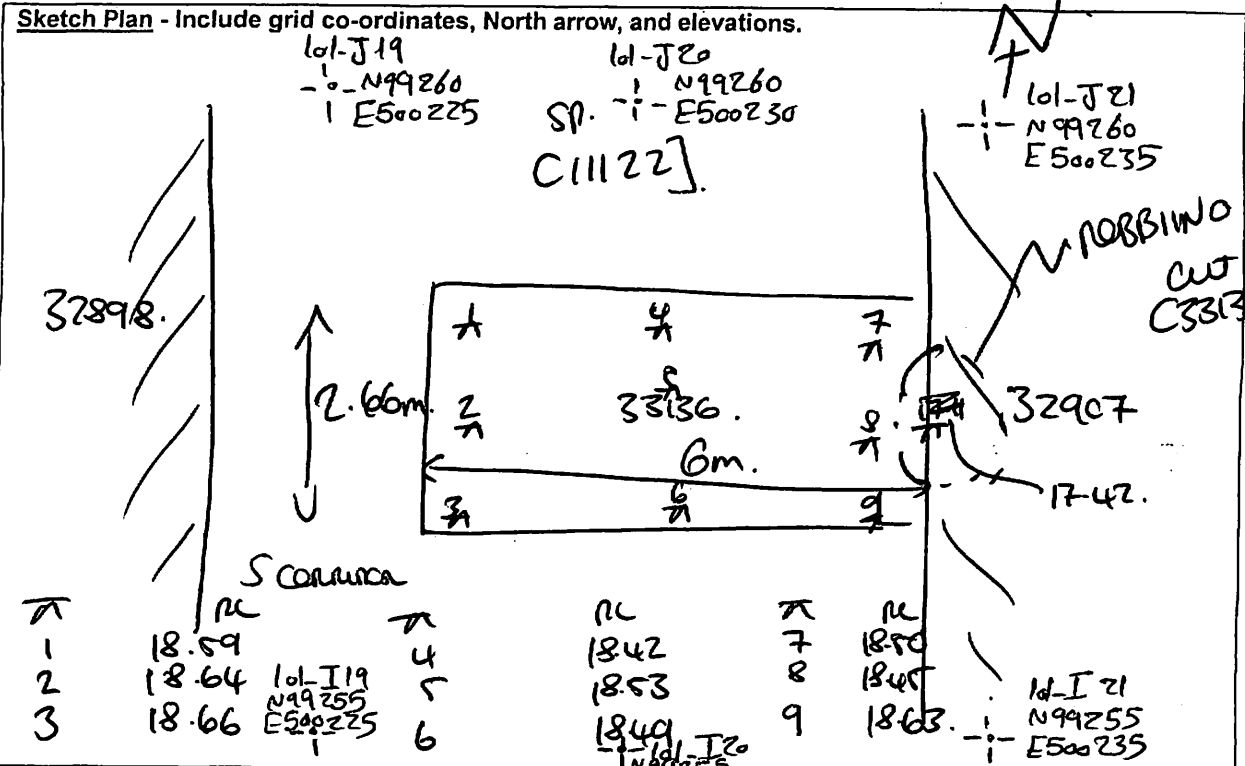 Sketch Plan - Include grid co-ordinates, North arrow, and elevations.
N
lol-J19
N99260
E500225
lol-J20
N99260
E500230
lol-J21
N99260
E500235
SP.
C11122].
ROBBIINO
CUT
C3313
32898.
1
4
7
2.66m.
2
5
33136.
8
32907
6m.
17.42.
3
6
9
S CORRIDOR
RL
RL
RL
1 18.59
4 18.42
7 18.50
2 18.64
5 18.53
8 18.45
3 18.66
6 18.49
9 18.63.
lol-I19
N99255
E500225
lol-I20
N99255
lol-I21
N99255
E500235